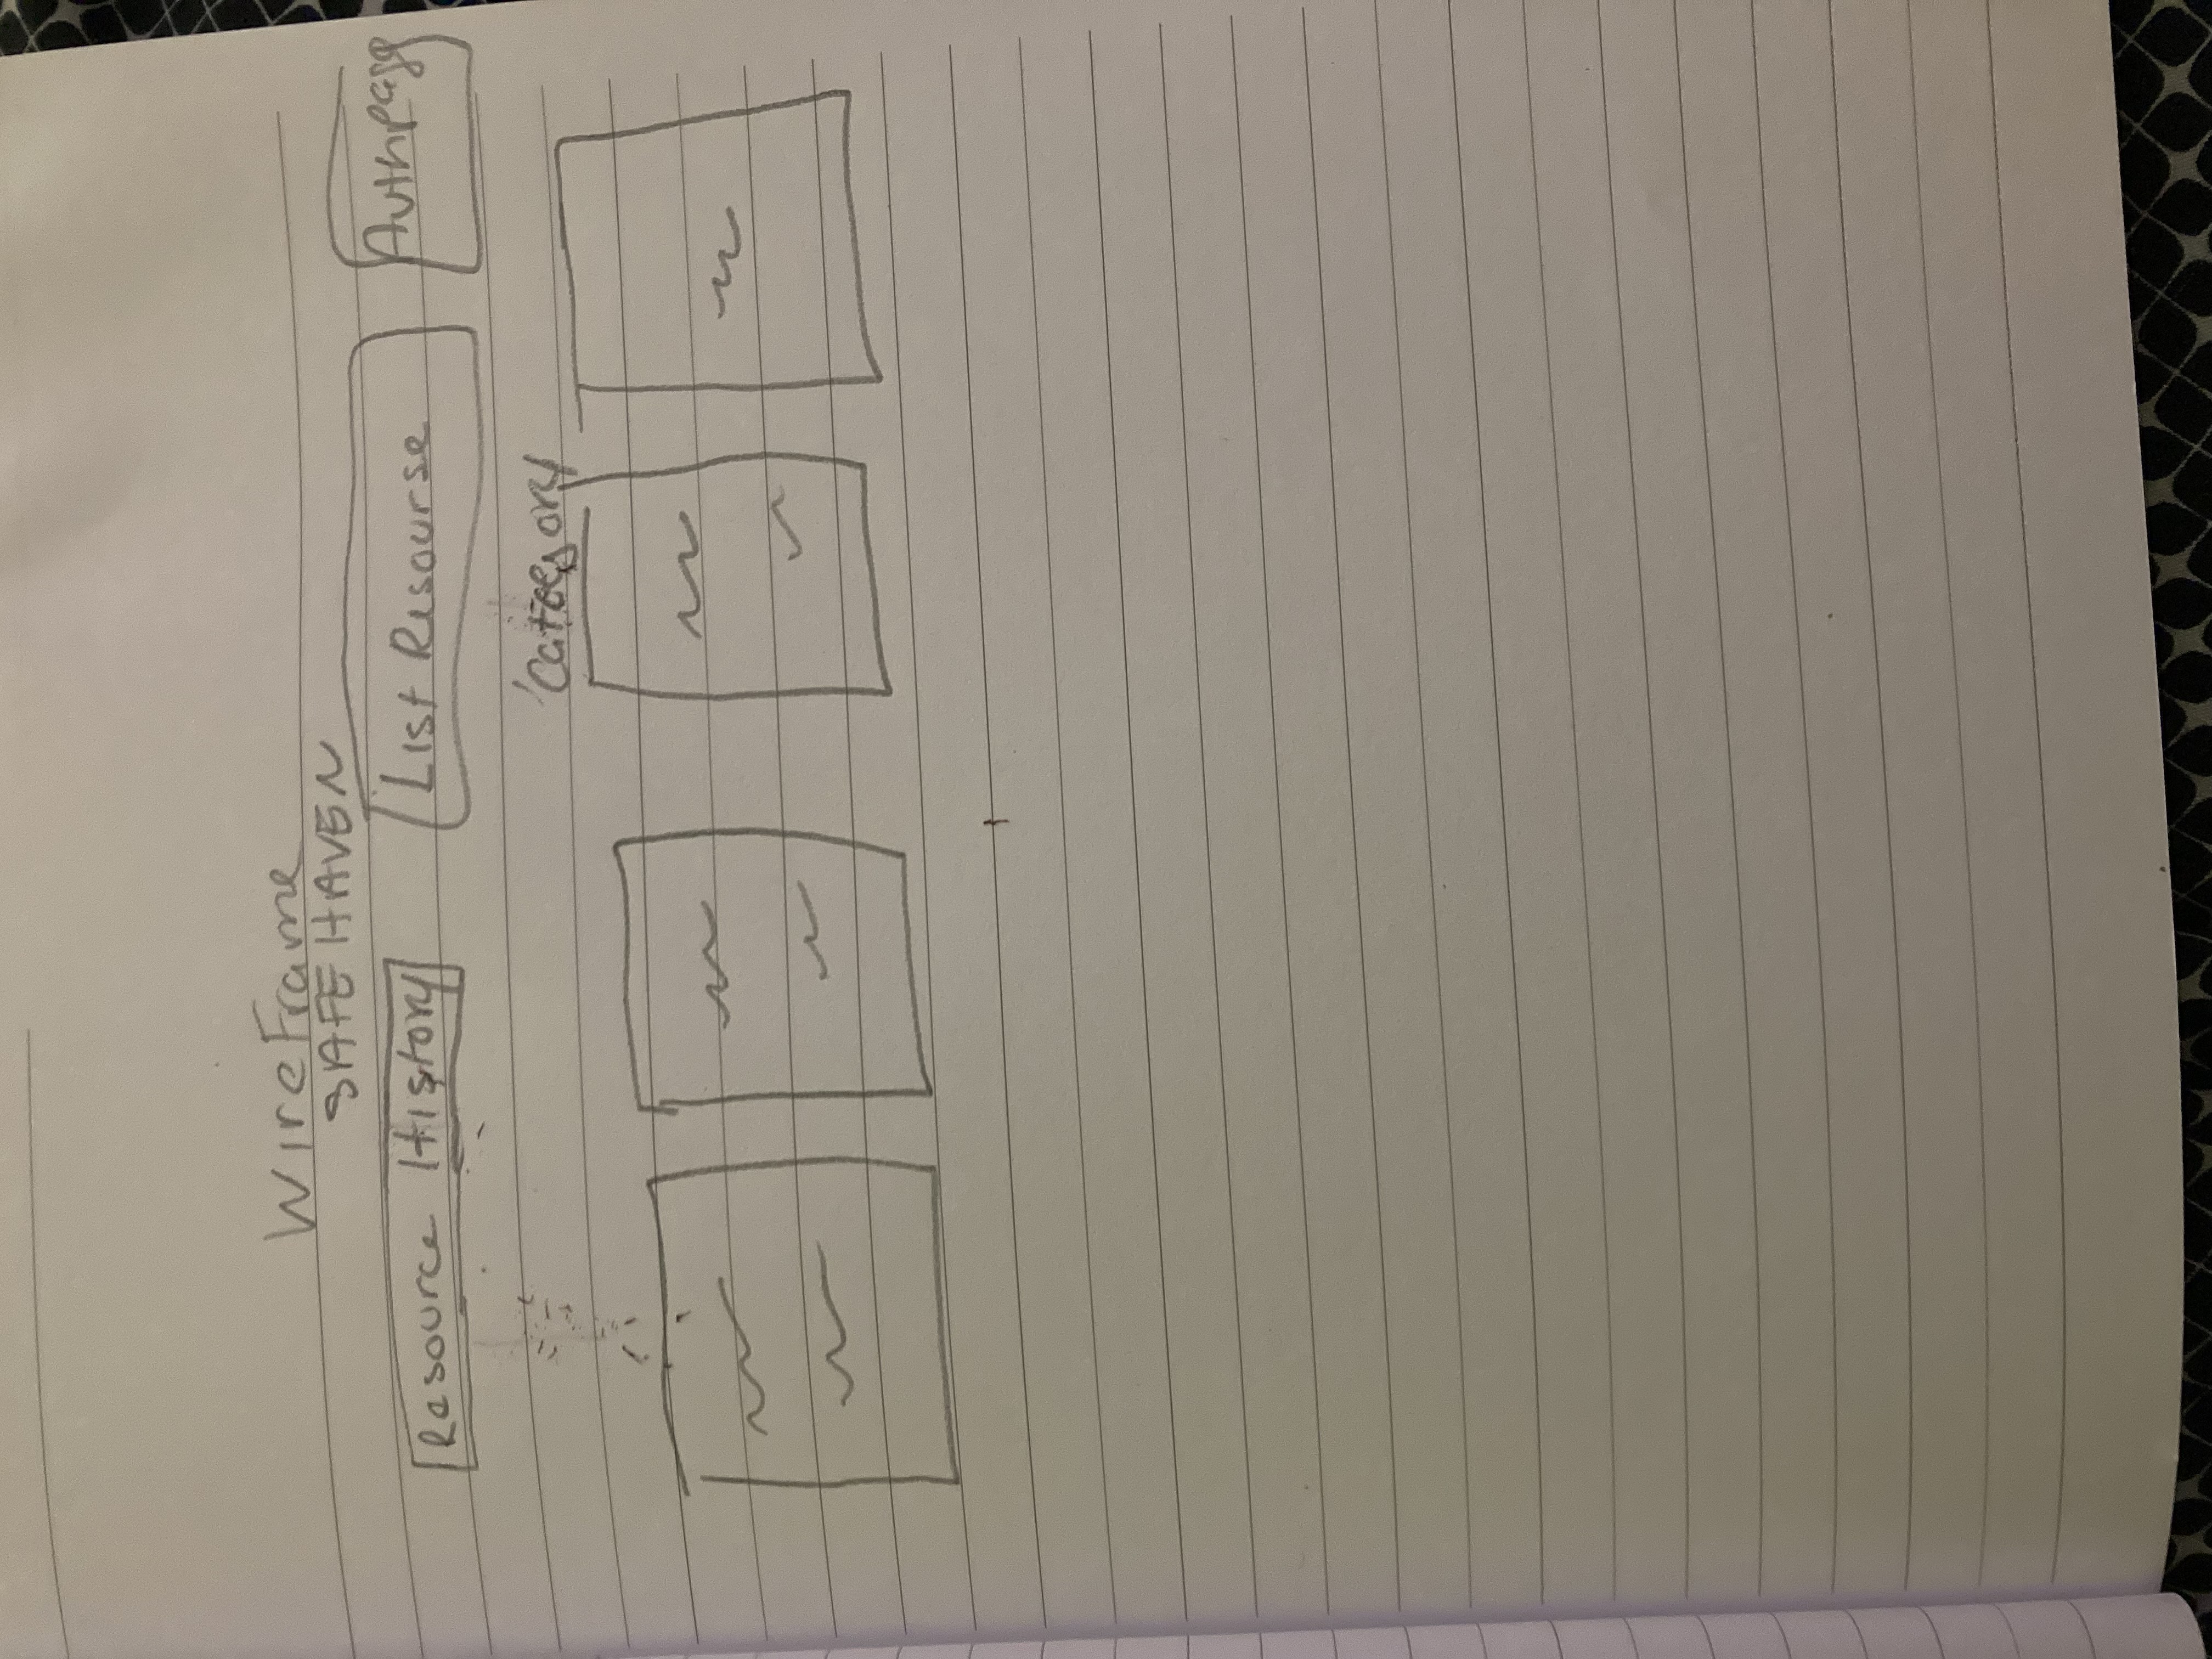 WireFrame
SAFE HAVEN
Resource History
List Resourse
Authpage
Category